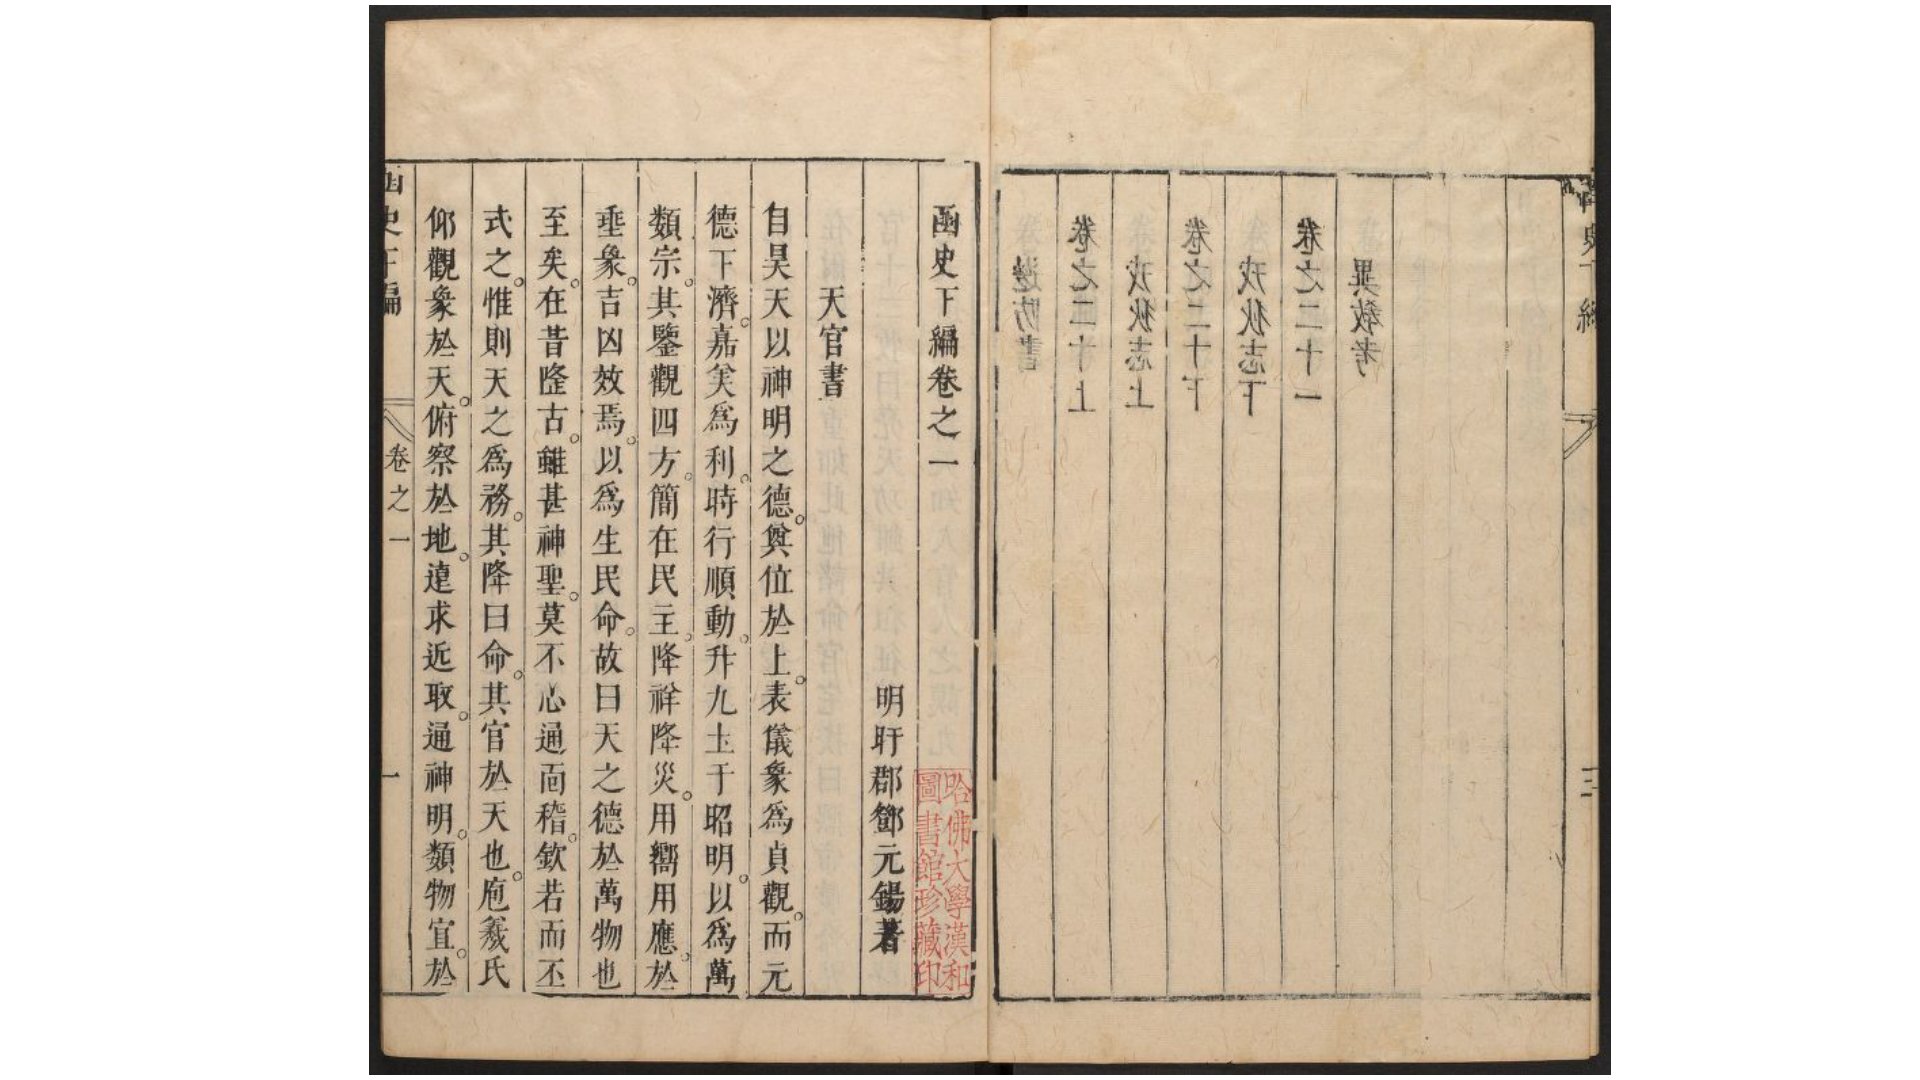 邊防書
卷之二十上
戎狄志上
卷之二十下
戎狄志下
卷之二十一
異教考
函史下編
三
函史下編卷之一
明盱郡鄧元錫著
天官書
自昊天以神明之德。奠位於上。表儀象爲貞觀。而元
德下濟。嘉美爲利。時行順動。升九土于昭明。以爲萬
類宗。其鑒觀四方。簡在民主。降祥降災。用嚮用應。於
垂象。吉凶效焉。以爲生民命。故曰天之德於萬物也
至矣。在昔隆古。雖甚神聖。莫不心通面稽。欽若而丕
式之。惟則天之爲務。其降曰命。其官於天也。庖羲氏
仰觀象於天。俯察於地。遠求近取。通神明。類物宜。於
函史下編
卷之一
一
哈佛大學漢和
圖書館珍藏印